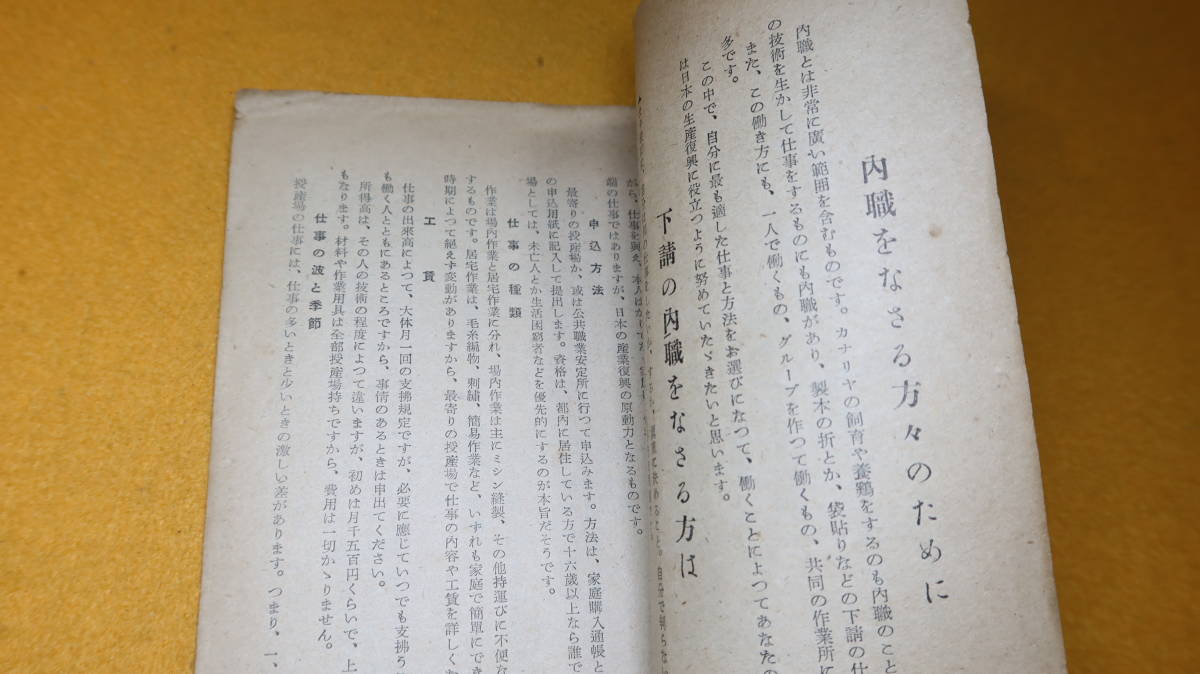 内職をなさる方々のために
内職とは非常に廣い範囲を含むものです。カナリヤの飼育や養鶏をするのも内職のこと
の技術を生かして仕事をするものにも内職があり、製本の折とか、袋貼りなどの下請の仕
また、この働き方にも、一人で働くもの、グループを作つて働くもの、共同の作業所に
多です。
この中で、自分に最も適した仕事と方法をお選びになつて、働くことによつてあなたの
は日本の生産復興に役立つように努めていたゞきたいと思います。
下請の内職をなさる方は
がら、仕事を與え、本人ばかり
端の仕事ではありますが、日本の産業復興の原動力となるものです。
申込方法
最寄りの授産場か、或は公共職業安定所に行つて申込みます。方法は、家庭購入通帳と
の申込用紙に記入して提出します。資格は、都内に居住している方で十六歳以上なら誰で
場としては、未亡人とか生活困窮者などを優先的にするのが本旨だそうです。
仕事の種類
作業は場内作業と居宅作業に分れ、場内作業は主にミシン縫製、その他持運びに不便な
するものです。居宅作業は、毛糸編物、刺繡、簡易作業など、いずれも家庭で簡単にでき
時期によつて絶えず変動がありますから、最寄りの授産場で仕事の内容や工賃を詳しくた
工賃
仕事の出來高によつて、大体月一回の支拂規定ですが、必要に應じていつでも支拂う
も働く人とともにあるところですから、事情のあるときは申出てください。
所得高は、その人の技術の程度によつて違いますが、初めは月千五百円くらいで、上
もなります。材料や作業用具は全部授産場持ちですから、費用は一切かゝりません。
仕事の波と季節
授産場の仕事には、仕事の多いときと少いときの激しい差があります。つまり、一、